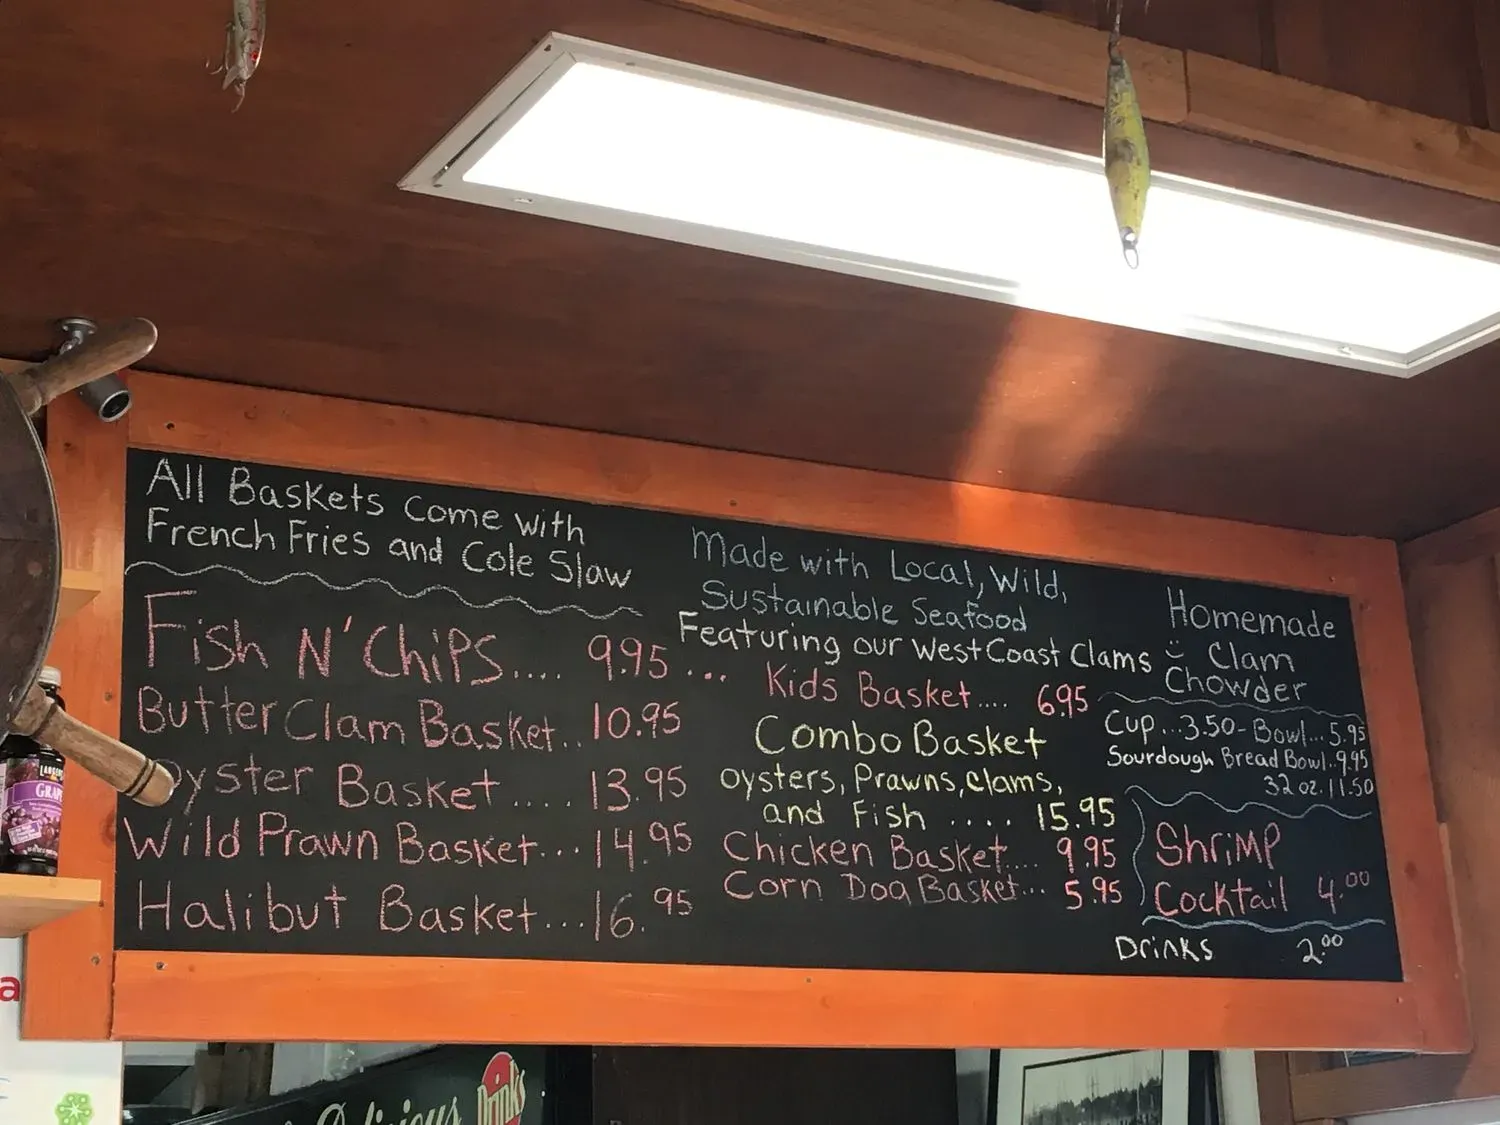 All Baskets come with
French Fries and Cole Slaw
Fish N' Chips.... 9.95 ...
Butter Clam Basket.. 10.95
Oyster Basket .... 13.95
Wild Prawn Basket... 14.95
Halibut Basket... 16.95
Made with Local, Wild,
Sustainable Seafood
Featuring our West Coast Clams
Kids Basket.... 6.95
Combo Basket
oysters, Prawns, Clams,
and Fish .... 15.95
Chicken Basket.... 9.95
Corn Dog Basket... 5.95
Homemade
Clam
Chowder
Cup...3.50- Bowl...5.95
Sourdough Bread Bowl..9.95
32 oz. 11.50
Shrimp
Cocktail 4.00
Drinks 2.00
GRAPE
a
Delicious
Drinks